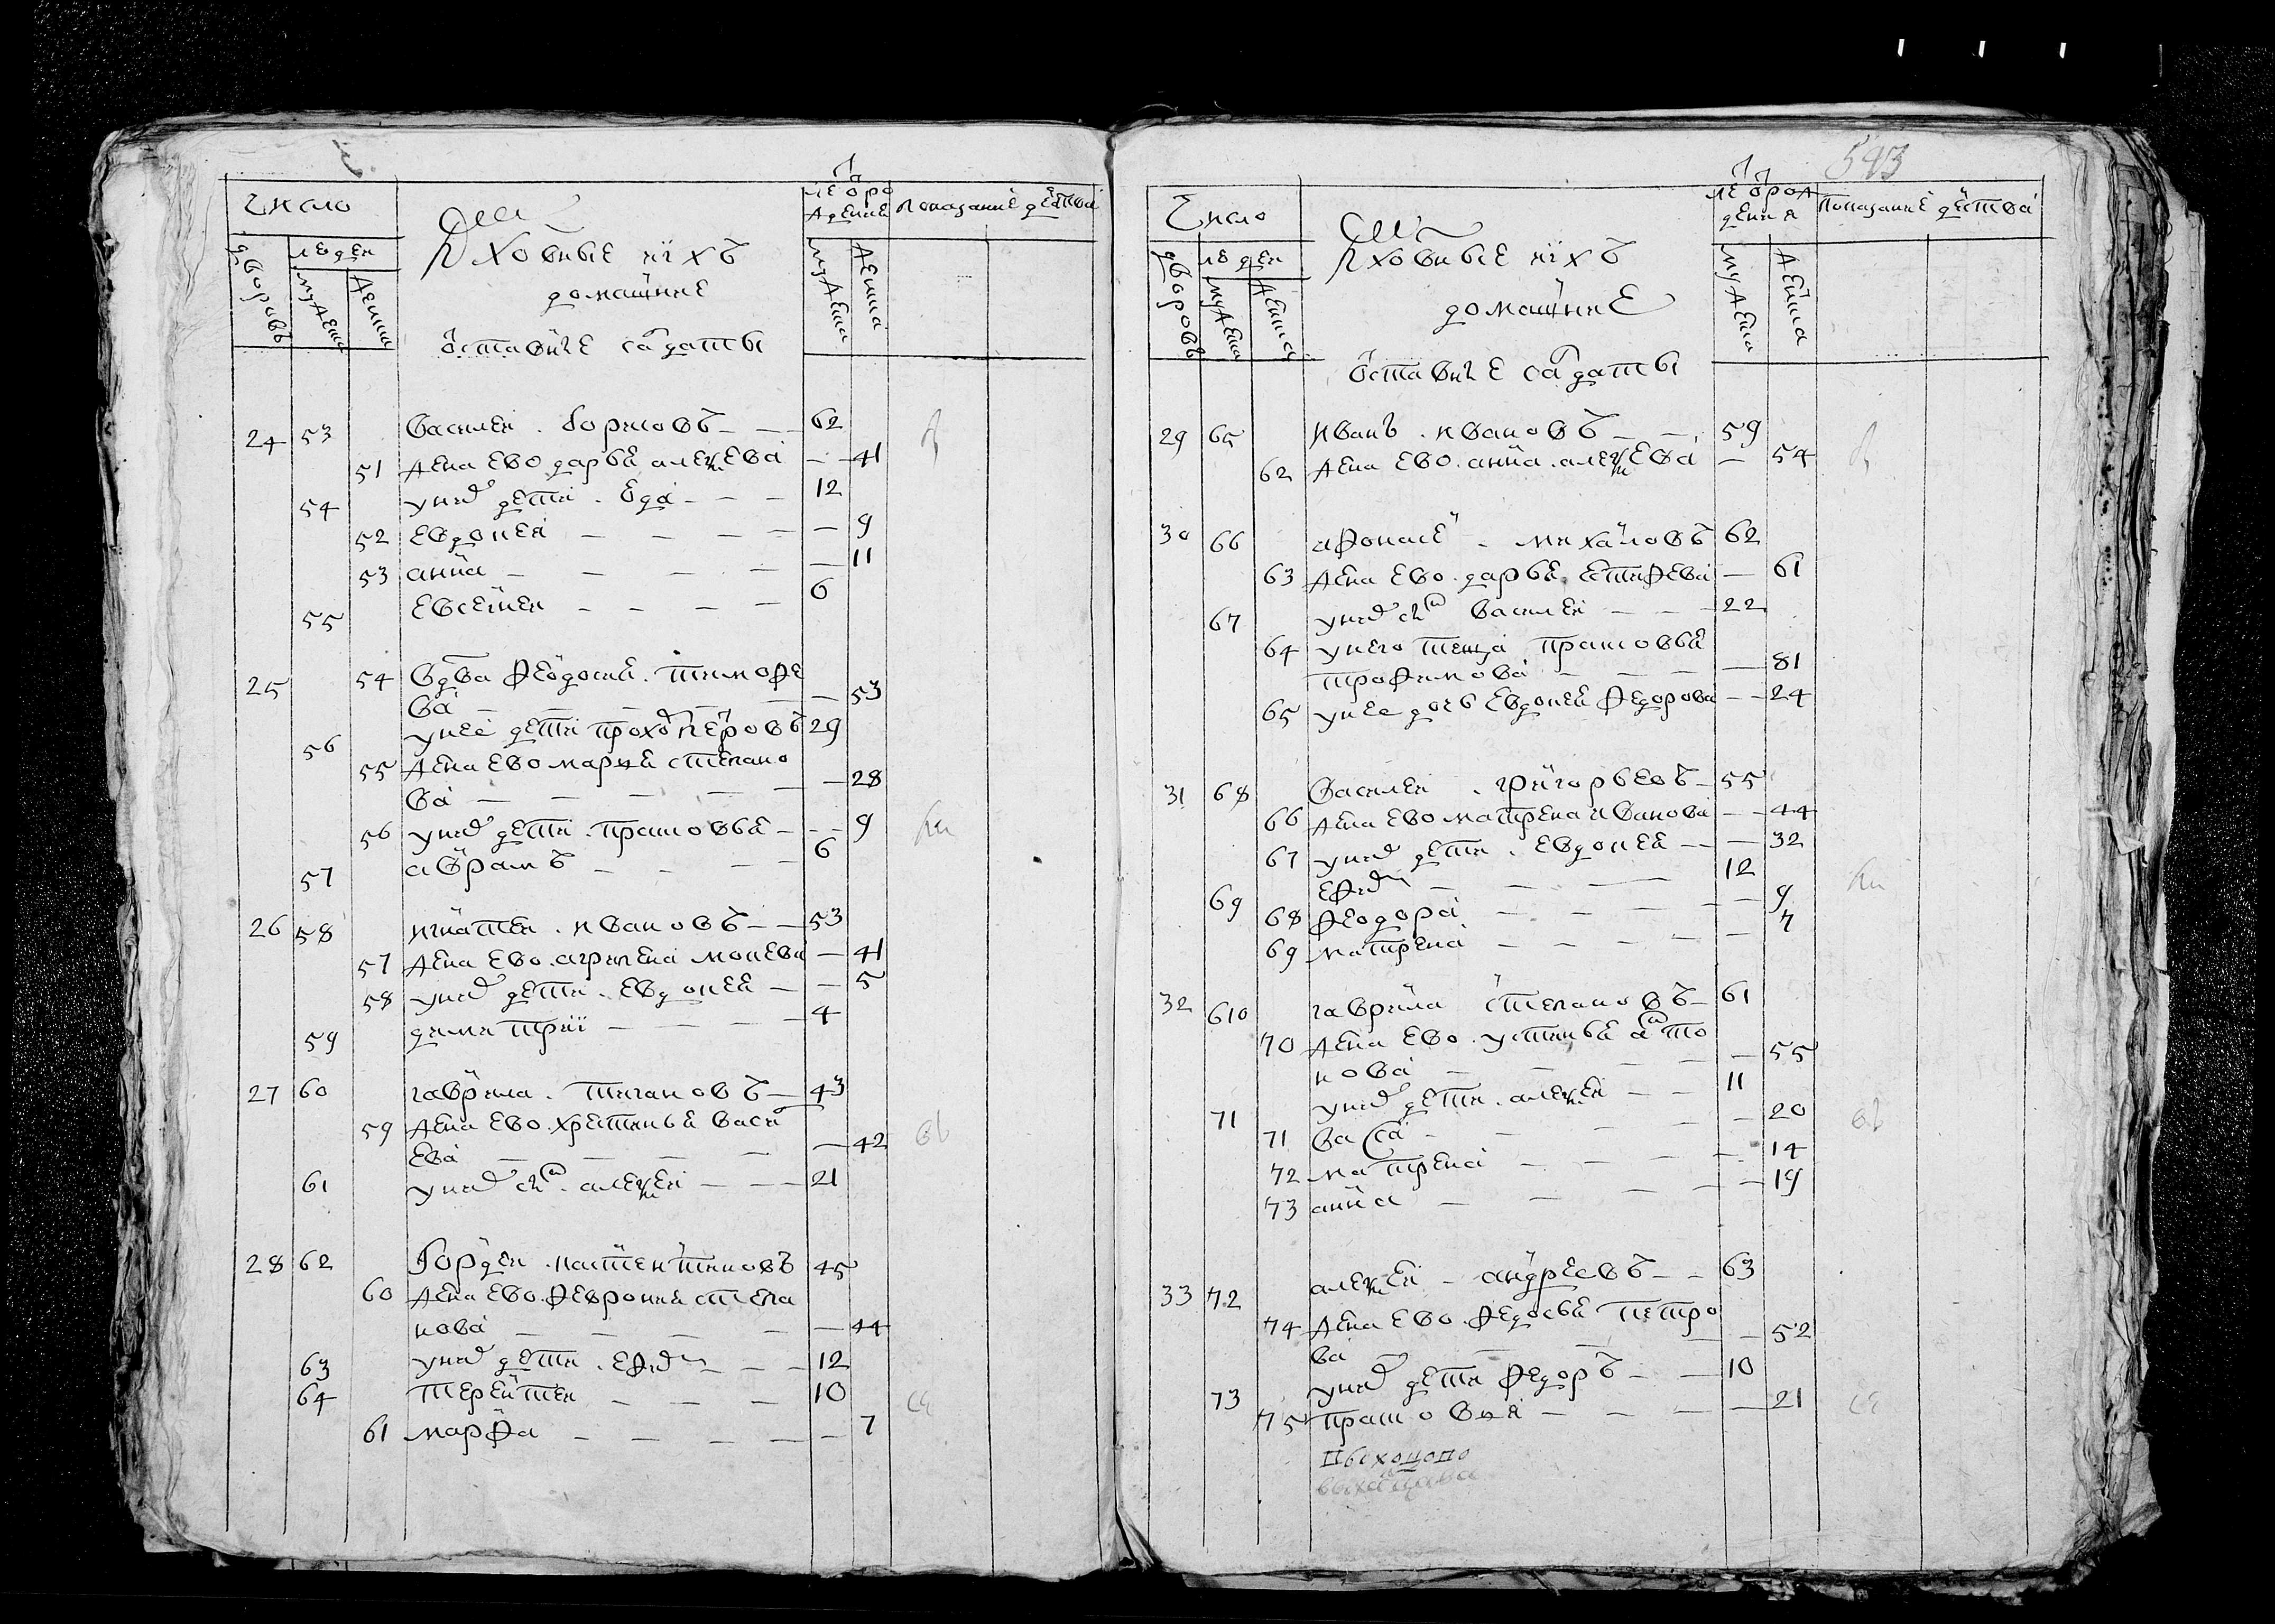 Число
людей
дворовъ
мужеска
женска
Духовные и ихъ
домашние
отъ рождения
мужеска
женска
показание действа
отставные салдаты
24 53 Василей Борисовъ 62
51 жена ево Дарья Алексеева 41
54 у них дети 12
52 Евдокея 9
53 анна 11
55 Евсегней 6
25 54 вдова Феодосия Тимофе
ва 53
56 у нее дети Прохор Петровъ 29
55 жена ево Марья Степано
ва 28
56 у них дети Прасковья 9
57 аврамъ 6
26 58 игнатей ивановъ 53
57 жена ево агрипена мокева 41
58 у них дети Евдокея 5
59 димитрии 4
27 60 гаврила Степановъ 43
59 жена ево Христинья Василь
ева 42
61 у них сынъ алексей 21
28 62 Гордей Костентиновъ 45
60 жена ево Феврония Степа
нова 44
63 у них дети Ефим 12
64 терентей 10
61 марфа 7
543
Число
людей
дворовъ
мужеска
женска
Духовные и ихъ
домашние
отъ рождения
мужеска
женска
показание действа
отставные салдаты
29 65 иванъ ивановъ 59
62 жена ево анна алексеева 54
30 66 афонасей михайловъ 62
63 жена ево Дарья Естифева 61
67 у них сынъ Василей 22
64 у него теща Прасковья
трофимова 81
65 у нее дочь Евдокея Федорова 24
31 68 Василей григорьевъ 55
66 жена ево матрена иванова 44
67 у них дети Евдокея 32
69 Ефим 12
68 Феодора 9
69 матрена 7
32 610 гаврила Степановъ 61
70 жена ево устинья анто
нова 55
71 у них дети алексей 11
71 Васса 20
72 матрена 14
73 анна 19
33 72 алексей андреевъ 63
74 жена ево Федосья Петро
ва 52
73 у них дети Федоръ 10
75 прасковья 21